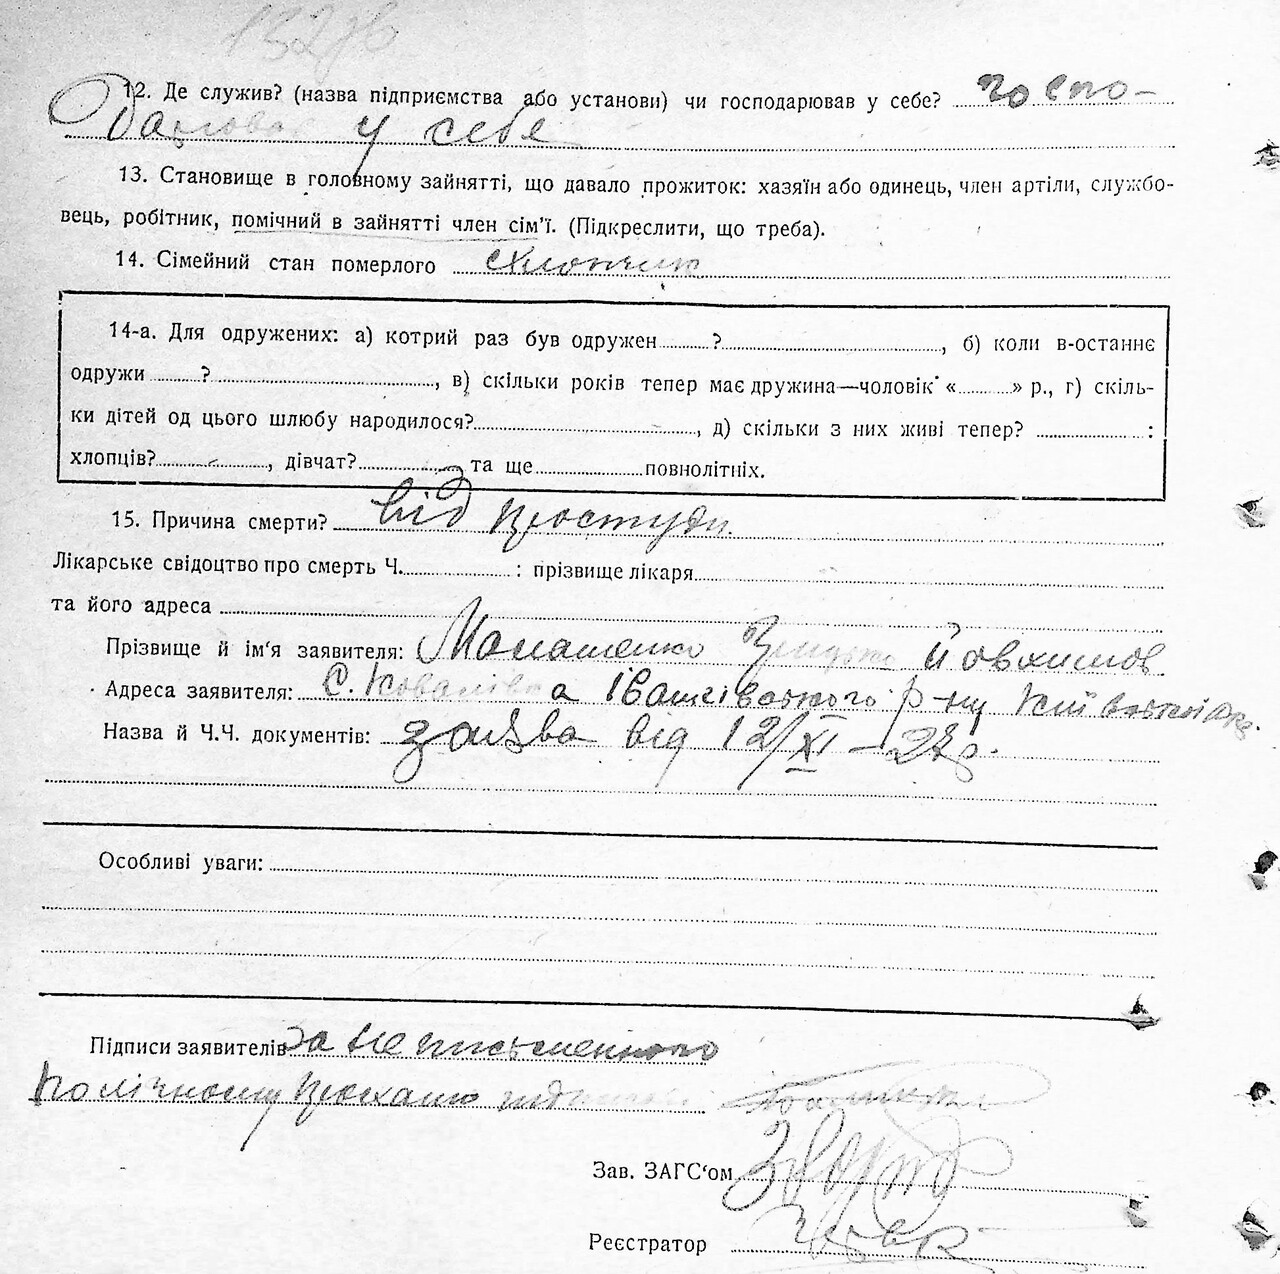 12. Де служив? (назва підприємства або установи) чи господарював у себе? госпо-
у себе
13. Становище в головному зайнятті, що давало прожиток: хазяїн або одинець, член артіли, службо-
вець, робітник, помічний в зайнятті член сім'ї. (Підкреслити, що треба).
14. Сімейний стан померлого
14-а. Для одружених: а) котрий раз був одружен ........? ........, б) коли в-останнє
одружи ........? ........, в) скільки років тепер має дружина—чоловік «........» р., г) скіль-
ки дітей од цього шлюбу народилося? ........, д) скільки з них живі тепер? ........:
хлопців? ........, дівчат? ........ та ще ........ повнолітніх.
15. Причина смерти? від простуди
Лікарське свідоцтво про смерть Ч. ........: прізвище лікаря ........
та його адреса ........
Прізвище й ім'я заявителя:
Адреса заявителя: С. Ковалівка р-ну
Назва й Ч.Ч. документів: заява від 12/XI—27р.
Особливі уваги:
Підписи заявителів за неписьменного
по його проханню
Зав. ЗАГС'ом
Реєстратор